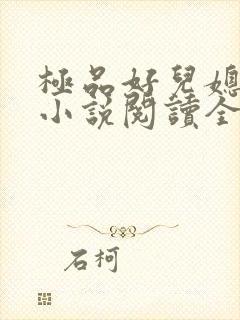 極品好兒媳
小說閱讀全
石柯